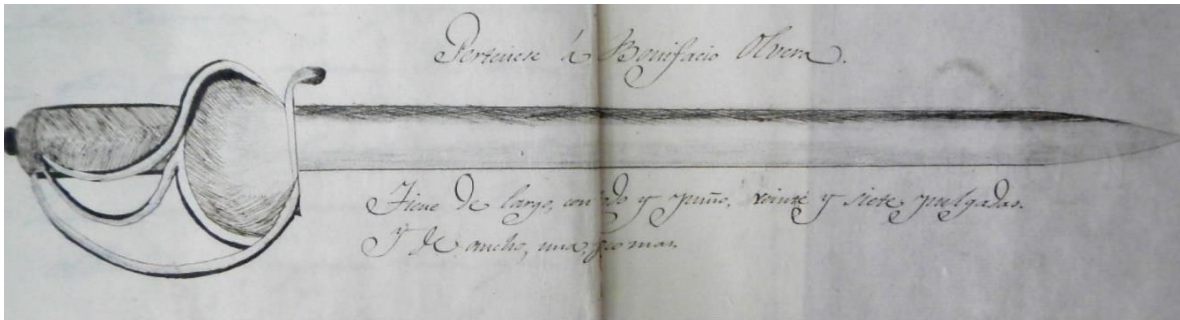 Pertenese á Bonifacio Olvera.
Tiene de largo, con todo y puño, veinte y siete pulgadas.
Y de ancho, una, poco mas.